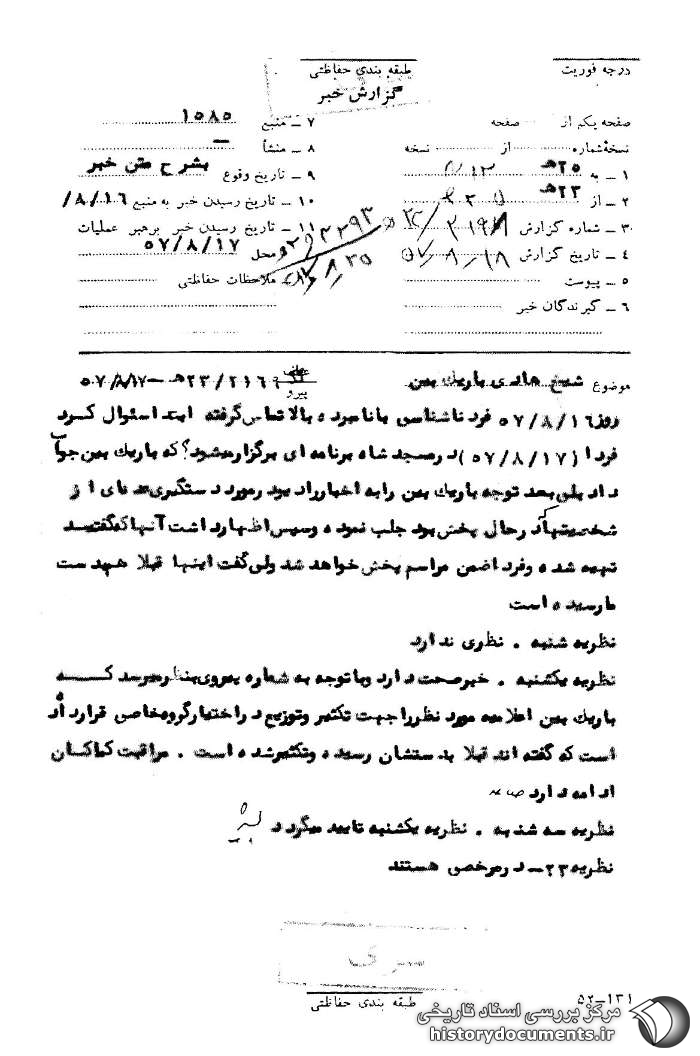 درجه فوریت
طبقه بندی حفاظتی
گزارش خبر
صفحه یکم از صفحه
نسخهٔ شماره از نسخه
۱ ـ به ۲۵هـ ۳۱۲
۲ ـ از ۲۳هـ
۳ ـ شماره گزارش
۴ ـ تاریخ گزارش ۵۷/۸/۱۸
۵ ـ پیوست
۶ ـ گیرندگان خبر
۷ ـ منبع ۱۵۸۵
۸ ـ منشأ ـ
۹ ـ تاریخ وقوع بشرح متن خبر
۱۰ ـ تاریخ رسیدن خبر به منبع ۸/۱۶/
۱۱ ـ تاریخ رسیدن خبر برهبر عملیات
محل ۵۷/۸/۱۷
ملاحظات حفاظتی
موضوع شیخ هادی باریك بین
عطف
پیرو ۲۳/۲۱۶۹هـ ـ ۵۷/۸/۱۷
روز ۵۷/۸/۱۶ فرد ناشناسی با نامبرده بالا تماس گرفته ابتدا سئوال کرد
فردا (۵۷/۸/۱۷) در مسجد شاه برنامه ای برگزار میشود؟ که باریك بین جواب
داد بلی بعد توجه باریك بین را به اخبار رادیو در مورد دستگیری عده ای از
شخصیتها که در حال پخش بود جلب نموده و سپس اظهار داشت آنها که گفتید
تهیه شده و فردا ضمن مراسم پخش خواهد شد ولی گفت اینها قبلا هم بدست
ما رسیده است
نظریه شنبه . نظری ندارد
نظریه یکشنبه . خبر صحت دارد و با توجه به شماره پیروی بنظر میرسد که
باریك بین اعلامیه مورد نظر را جهت تکثیر و توزیع در اختیار گروه خاصی قرار داده
است که گفته اند قبلا بدستشان رسیده و تکثیر شده است . مراقبت کماکان
ادامه دارد
نظریه سه شنبه . نظریه یکشنبه تایید میگردد
نظریه ۲۳ ـ در مرخصی هستند
سری
طبقه بندی حفاظتی
۵۲-۱۳۱
مرکز بررسی اسناد تاریخی
historydocuments.ir